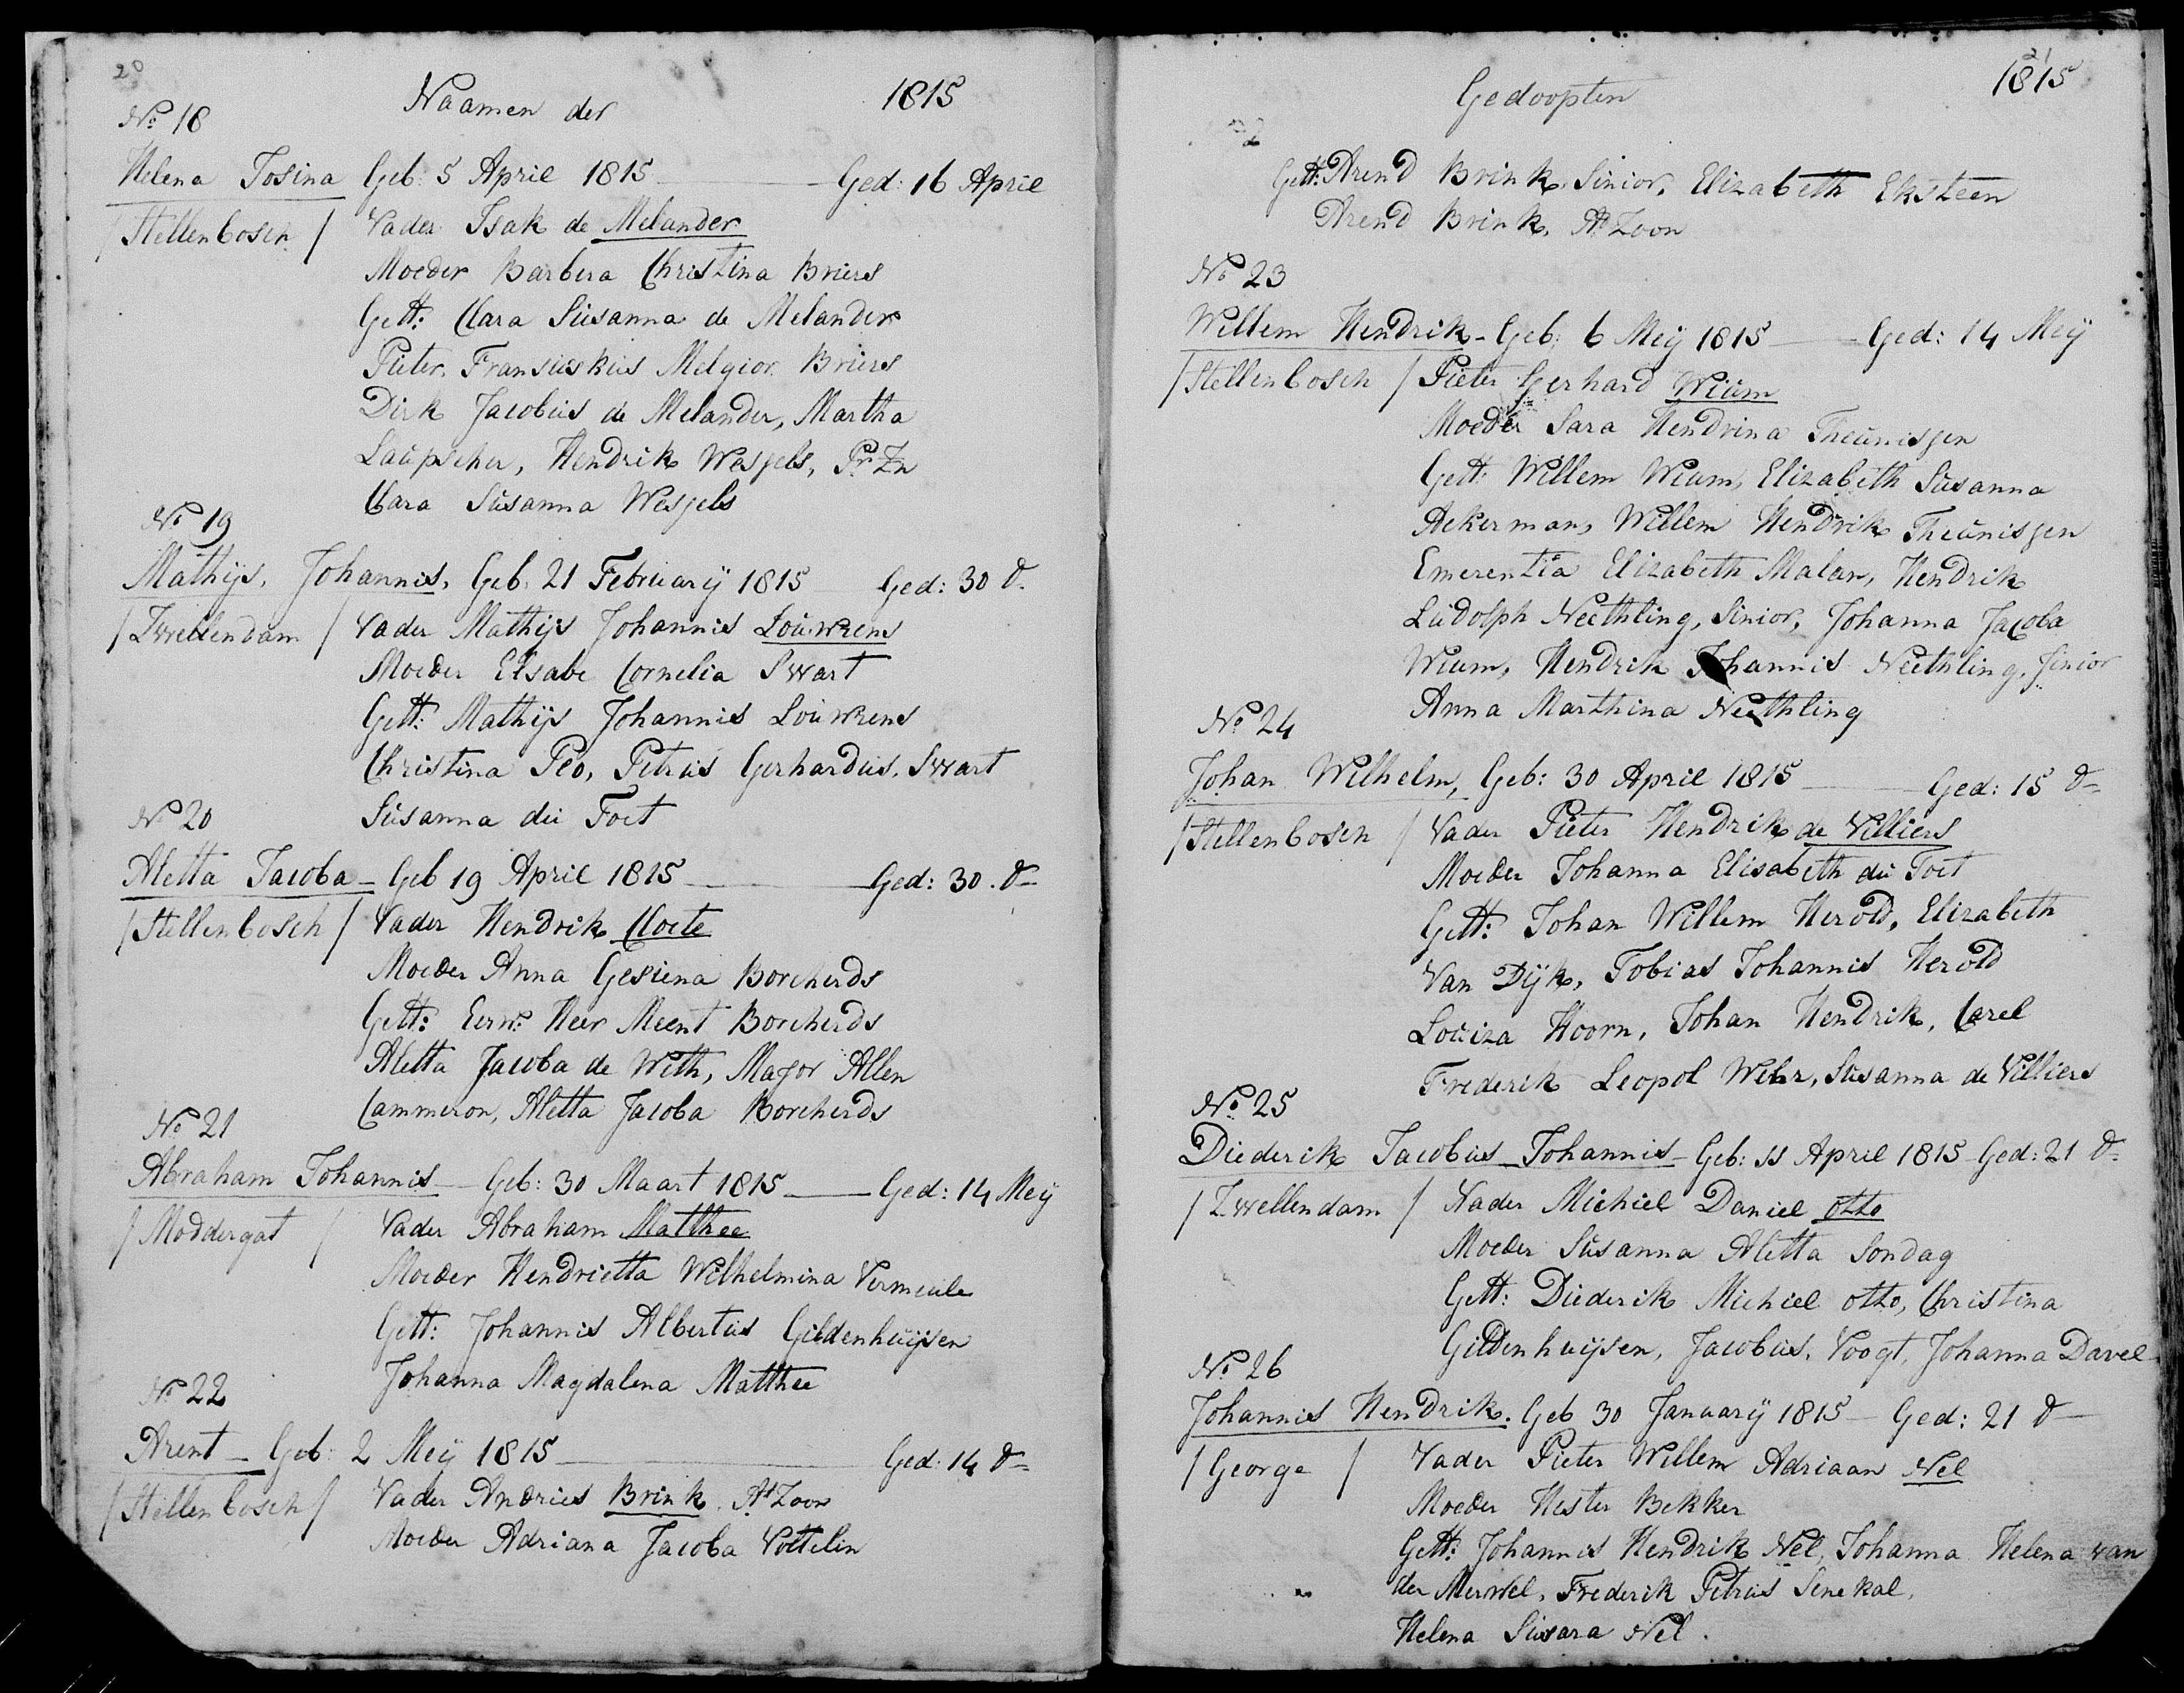 20
Naamen der 1815
No 18
Helena Josina Geb: 5 April 1815 — Ged: 16 April
/Stellenbosch/ Vader Isak de Melander
Moeder Barbera Christina Briers
Gett: Clara Susanna de Melander
Pieter Fransieskus Melgior Briers
Dirk Jacobus de Melander, Martha
Laupscher, Hendrik Wessels, Pr Zn
Clara Susanna Wessels
No 19
Mathijs Johannis, Geb. 21 February 1815 Ged: 30 do
/Zwellendam/ Vader Mathijs Johannis Louwrens
Moeder Elsabe Cornelia Swart
Gett: Mathijs Johannis Louwrens
Christina Peo, Petrus Gerhardus Swart
Susanna du Toet
No 20
Aletta Jacoba — Geb 19 April 1815 — Ged: 30. do
/Stellenbosch/ Vader Hendrik Cloete
Moeder Anna Gesiena Borcherds
Gett: Eerw: Heer Meent Borcherds
Aletta Jacoba de With, Major Allen
Cammeron, Aletta Jacoba Borcherds
No 21
Abraham Johannis — Geb: 30 Maart 1815 — Ged: 14 Mey
/Moddergat/ Vader Abraham Matthee
Moeder Hendrietta Wilhelmina Vermeule
Gett: Johannis Albertus Gildenhuysen
Johanna Magdalena Matthee
No 22
Arent — Geb: 2 Mey 1815 — Ged: 14 do
/Stellenbosch/ Vader Andries Brink At Zoon
Moeder Adriana Jacoba Voltelin
21
Gedoopten 1815
Gett: Arend Brink, Sinior, Elizabeth Eksteen
Arend Brink, As Zoon
No 23
Willem Hendrik — Geb: 6 Mey 1815 — Ged: 14 Mey
/Stellenbosch/ Pieter Gerhard Wium
Moeder Sara Hendrina Theunissen
Gett: Willem Wium, Elizabeth Susanna
Ackerman, Willem Hendrik Theunissen
Emerentia Elizabeth Malan, Hendrik
Ludolph Neethling, Sinior, Johanna Jacoba
Wium, Hendrik Johannis Neethling, Jinior
Anna Marthina Neethling
No 24
Johan Wilhelm, Geb: 30 April 1815 — Ged: 15 do
/Stellenbosch/ Vader Pieter Hendrik de Villiers
Moeder Johanna Elisabeth du Toet
Gett: Johan Willem Herold, Elizabeth
Van Dyk, Tobias Johannis Herold
Louiza Hoorn, Johan Hendrik, Carel
Frederik Leopol Wehr, Susanna de Villiers
No 25
Diederik Jacobus Johannis — Geb: 11 April 1815 Ged: 21 do
/Zwellendam/ Vader Michiel Daniel Otto
Moeder Susanna Aletta Sondag
Gett: Diederik Michiel Otto, Christina
Gildenhuysen, Jacobus Voogt, Johanna Davel
No 26
Johannis Hendrik. Geb 30 January 1815 — Ged: 21 do
/George/ Vader Pieter Willem Adriaan Nel
Moeder Hester Bekker
Gett: Johannis Hendrik Nel, Johanna Helena van
der Merwel, Frederik Petrus Senekal,
Helena Susara Nel.